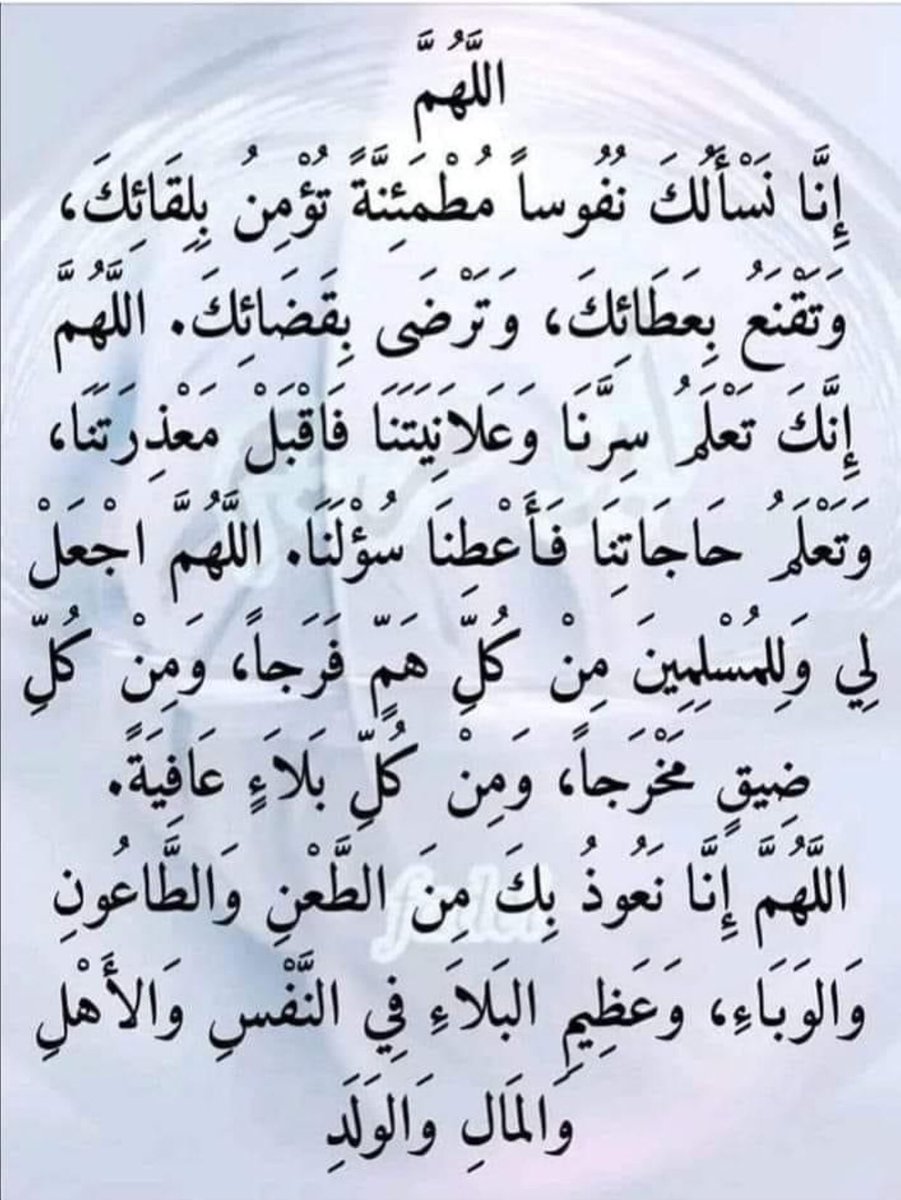 اللَّهُمَّ
إِنَّا نَسْأَلُكَ نُفُوساً مُطْمَئِنَّةً تُؤْمِنُ بِلِقَائِكَ،
وَتَقْنَعُ بِعَطَائِكَ، وَتَرْضَى بِقَضَائِكَ. اللَّهُمَّ
إِنَّكَ تَعْلَمُ سِرَّنَا وَعَلانِيَتَنَا فَاقْبَلْ مَعْذِرَتَنَا،
وَتَعْلَمُ حَاجَاتِنَا فَأَعْطِنَا سُؤْلَنَا. اللَّهُمَّ اجْعَلْ
لِي وَلِلمُسْلِمِينَ مِنْ كُلِّ هَمٍّ فَرَجاً، وَمِنْ كُلِّ
ضِيقٍ مَخْرَجاً، وَمِنْ كُلِّ بَلاءٍ عَافِيَةً.
اللَّهُمَّ إِنَّا نَعُوذُ بِكَ مِنَ الطَّعْنِ وَالطَّاعُونِ
وَالوَبَاءِ، وَعَظِيمِ البَلاَءِ فِي النَّفْسِ وَالأَهْلِ
وَالمَالِ وَالوَلَدِ